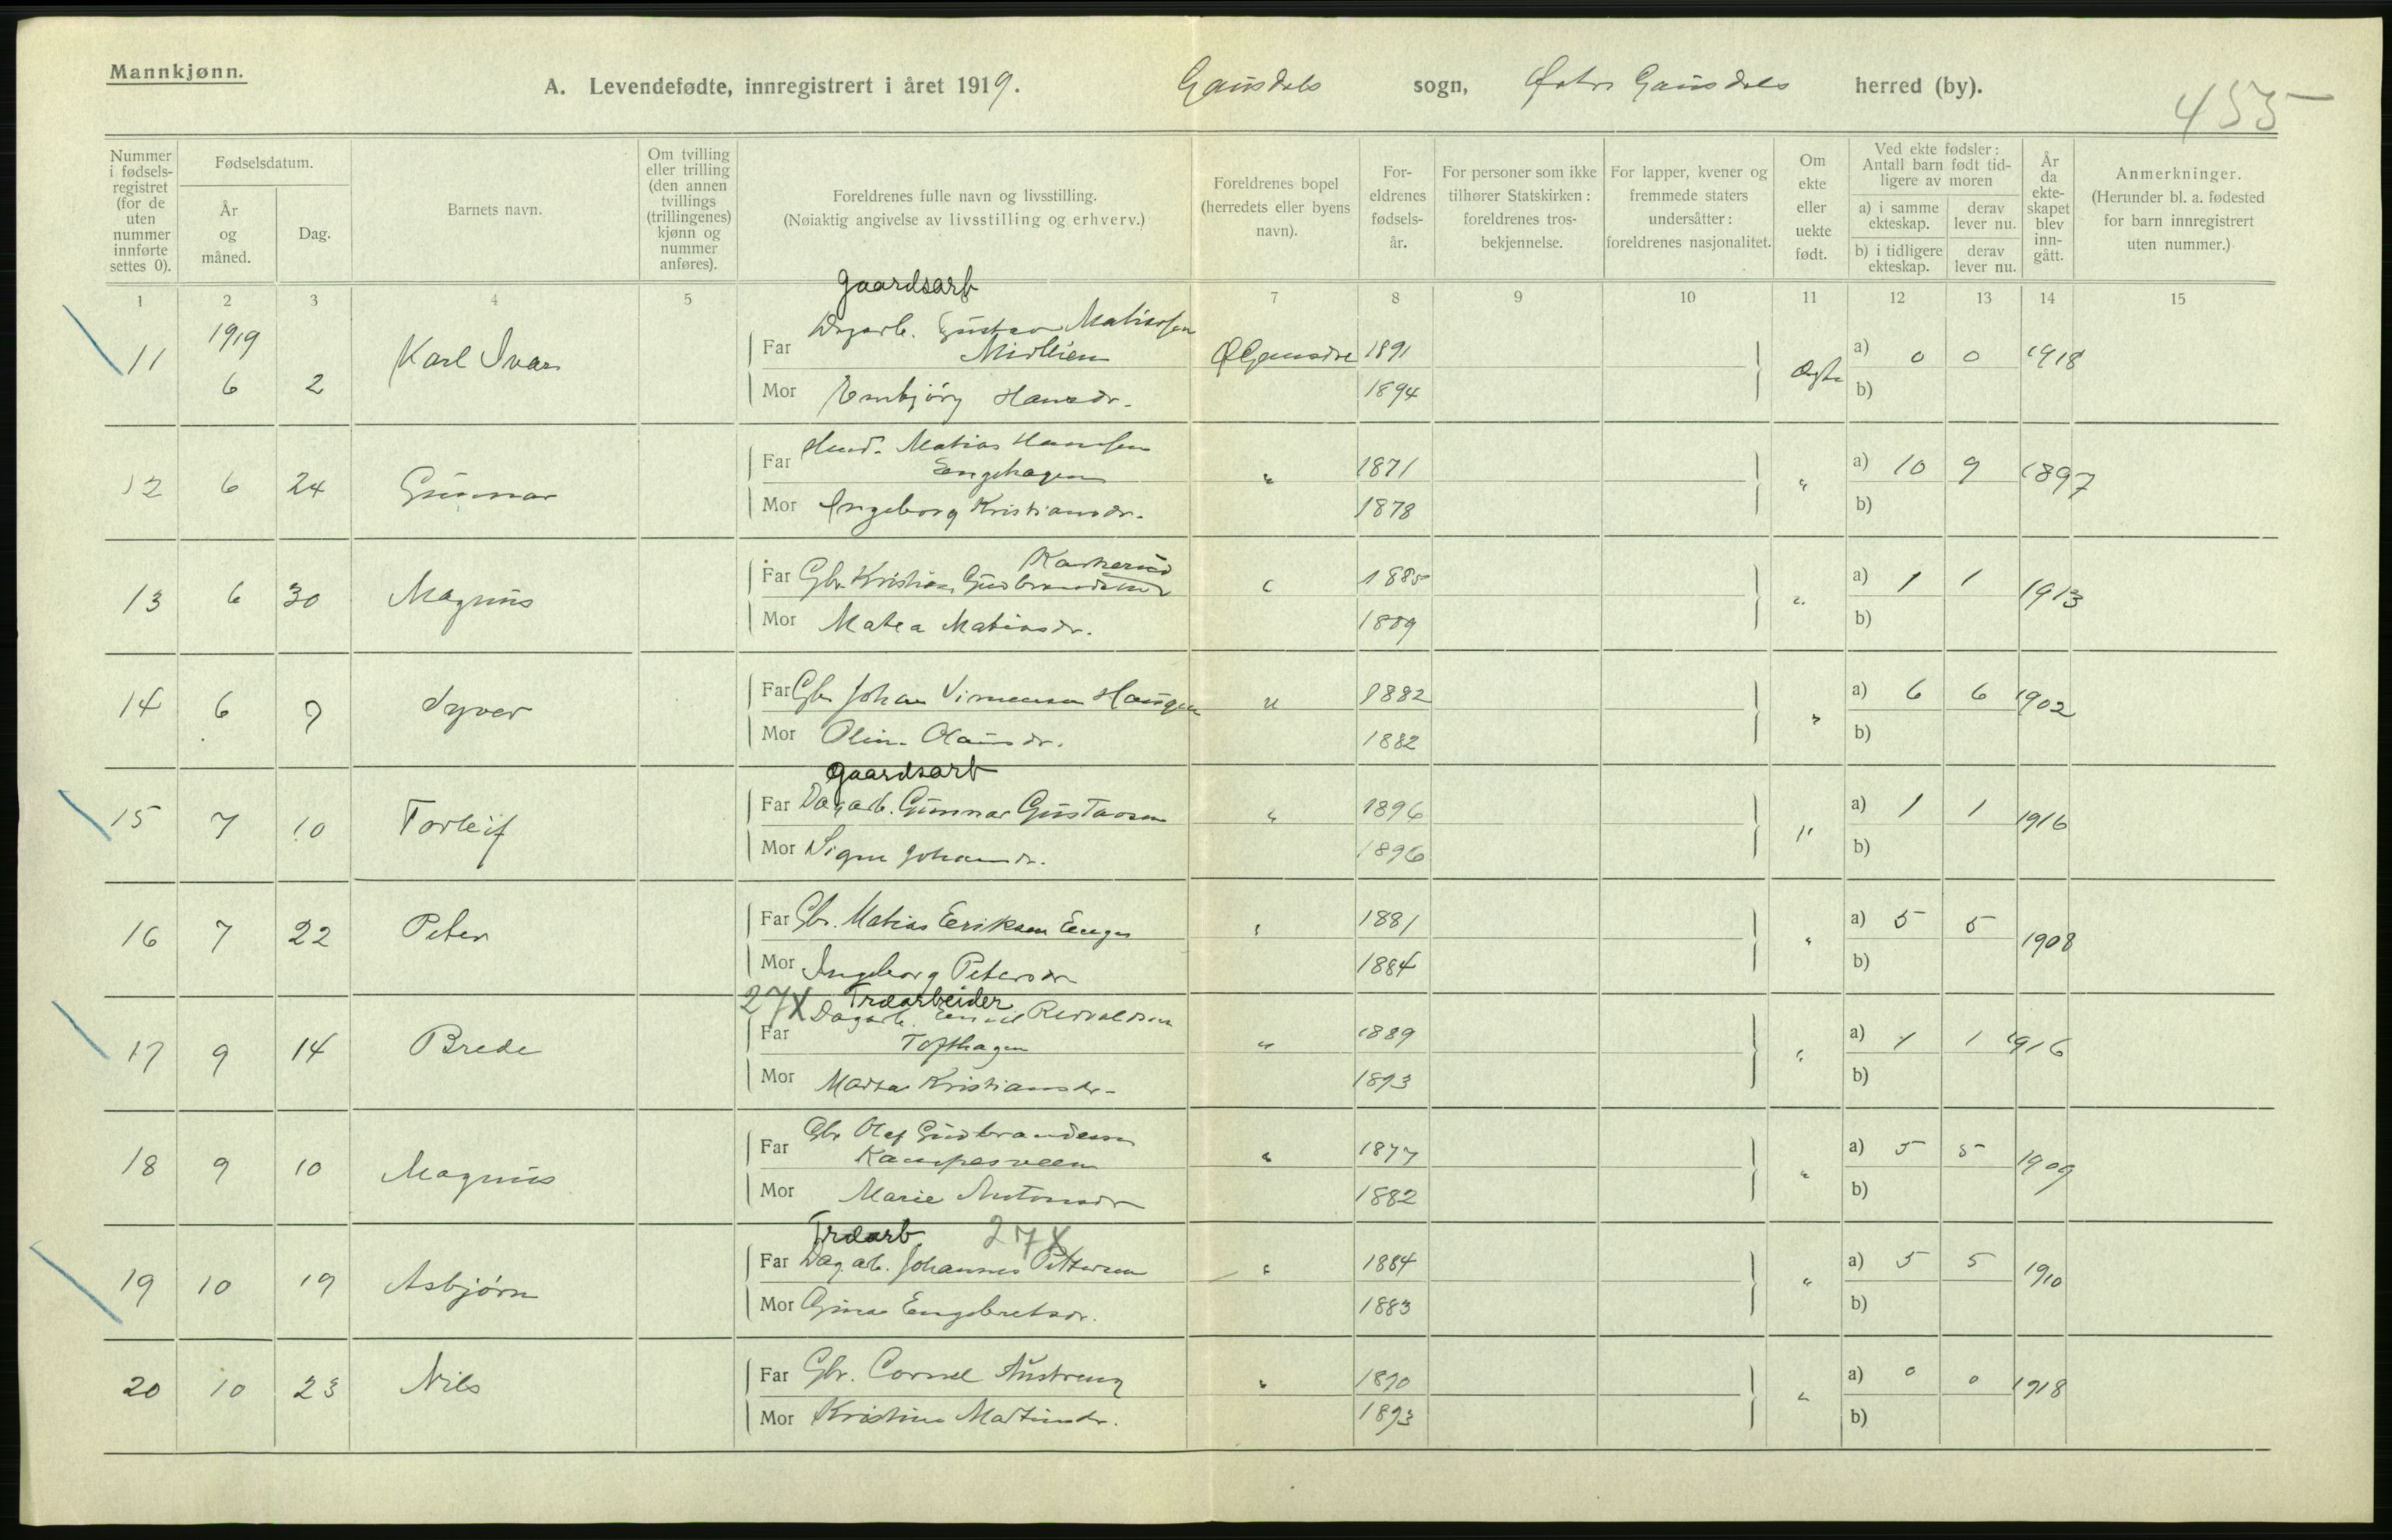 Mannkjønn.
A. Levendefødte, innregistrert i året 1919. Gausdals sogn, Østre Gausdals herred (by).
455
Nummer i fødsels-registret (for de uten nummer innførte settes 0).
Fødselsdatum.
År og måned.
Dag.
Barnets navn.
Om tvilling eller trilling (den annen tvillings (trillingenes) kjønn og nummer anføres).
Foreldrenes fulle navn og livsstilling.
(Nøiaktig angivelse av livsstilling og erhverv.)
Foreldrenes bopel (herredets eller byens navn).
For-eldrenes fødsels-år.
For personer som ikke tilhører Statskirken: foreldrenes tros-bekjennelse.
For lapper, kvener og fremmede staters undersåtter: foreldrenes nasjonalitet.
Om ekte eller uekte født.
Ved ekte fødsler: Antall barn født tid-ligere av moren
a) i samme ekteskap.
derav lever nu.
b) i tidligere ekteskap.
derav lever nu.
År da ekte-skapet blev inn-gått.
Anmerkninger.
(Herunder bl. a. fødested for barn innregistrert uten nummer.)
1 2 3 4 5 7 8 9 10 11 12 13 14 15
Gaardsarb
11 1919 6 2 Karl Ivar
Far Dagarb. Gustav Matiassen
Ø Gausdal 1891 a) 0 0 1918
Mor Embjørg Hansdr. 1894 b)
12 6 24 Gunnar
Far Matias Hansen
Engehagen " 1871 " a) 10 9 1897
Mor Ingeborg Kristiansdr. 1878 b)
13 6 30 Magnus
Far Gbr. Kristian Gudbrandsen
" 1885 " a) 1 1 1913
Mor Matea Matiasdr. 1889 b)
14 6 9 Syver
Far Gbr. Johan Simensen Haugen " 1882 " a) 6 6 1902
Mor Oline Olausdr. 1882 b)
Gaardsarb
15 7 10 Torleif
Far Dagarb. Gunnar Gustavsen " 1896 " a) 1 1 1916
Mor Signe Johansdr. 1896 b)
16 7 22 Peter
Far Gbr. Matias Eriksen Enge " 1881 " a) 5 5 1908
Mor Ingeborg Petersdr 1884 b)
27X Træarbeider
17 9 14 Brede
Far Dagarb.
Tofthagen " 1889 " a) 1 1 1916
Mor Marta Kristiansdr. 1893 b)
18 9 10 Magnus
Far Gbr Olaf Gudbrandsen
Kampesveen " 1877 " a) 5 5 1909
Mor Marie Antonsdr 1882 b)
Træarb 27X
19 10 19 Asbjørn
Far Dagarb. Johannes Pettersen " 1884 " a) 5 5 1910
Mor Gina Engebretsdr. 1883 b)
20 10 23 Nils
Far Gbr. Cornel Austreng " 1890 " a) 0 0 1918
Mor Kristine Martinsdr. 1893 b)